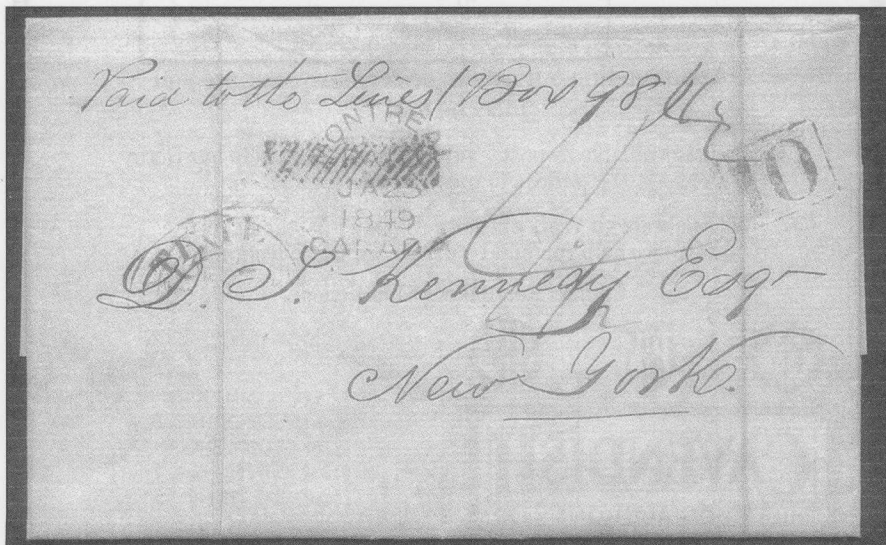 Paid to the Lines / Box 98
MONTREAL
1849
CANADA
PAID
10
D. S. Kennedy Esqr
New York.